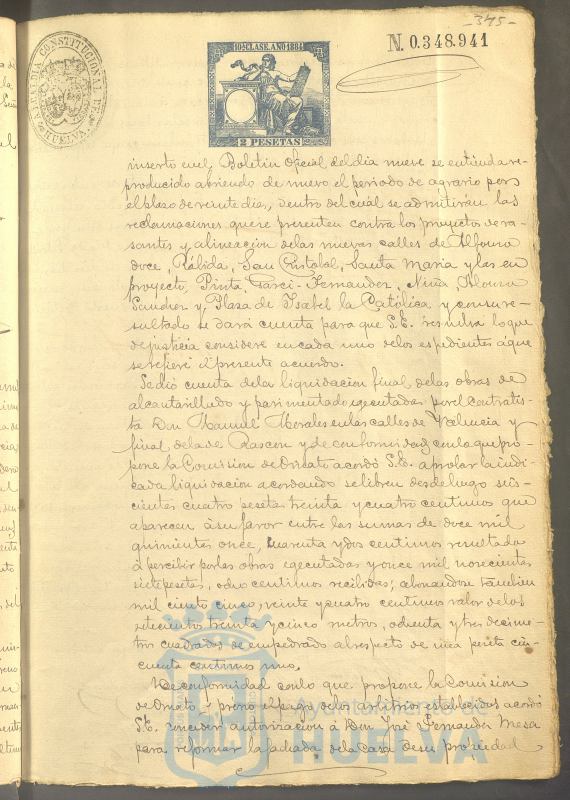 -345-
ALCALDIA CONSTITUCIONAL DE HUELVA
10ª CLASE. AÑO 1884
2 PESETAS
N. 0.348.941
inserto en el Boletin Oficial del dia nueve se entienda re-
producido abriendo de nuevo el periodo de agravio por
el plazo de veinte dias, dentro del cual se admitirán las
reclamaciones que se presenten contra los proyectos de ra-
santes y alineacion de las nuevas calles de Alfonso
doce, Rábida, San Cristobal, Santa Maria y las en
proyecto, Pinta, Garci-Fernandez, Niña, Alonso
Sanchez y Plaza de Isabel la Católica y con su re-
sultado se dará cuenta para que S.E. resuelva lo que
de justicia considere en cada uno de los espedientes á que
se refiere el presente acuerdo.
Se dió cuenta de la liquidacion final de las obras de
alcantarillado y pavimentado ejecutadas por el contratis-
ta Don Manuel Morales en las calles de Valencia y
final de la de Rascon y de conformidad con lo que pro-
pone la Comision de Ornato acordó S.E. aprobar la indi-
cada liquidacion acordando se libren desde luego seis-
cientas cuatro pesetas treinta y cuatro centimos que
aparecen á su favor entre las sumas de doce mil
quinientas once, cuarenta y dos centimos resultado
á percibir por las obras ejecutadas y once mil novecientas
siete pesetas, ocho centimos recibidas; abonandose tambien
mil ciento cinco, veinte y cuatro centimos valor de los
setecientos treinta y cinco metros, ochenta y tres decime-
tros cuadrados de empedrado al respecto de una peseta cin-
cuenta centimos uno.
De conformidad con lo que propone la Comision
de Ornato y previo el pago de los arbitrios establecidos acordó
S.E. conceder autorizacion á Don José Fernandez Mesa
para reformar la fachada de la casa de su propiedad
Ayuntamiento de
HUELVA